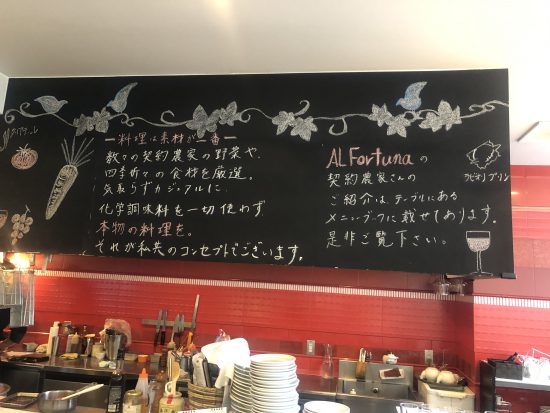 ー料理は素材が一番ー
数々の契約農家の野菜や、
四季折々の食材を厳選。
気取らずカジュアルに、
化学調味料を一切使わず
本物の料理を。
それが私共のコンセプトでございます。
AL Fortunaの
契約農家さんの
ご紹介は、テーブルにある
メニューブックに載せてあります。
是非ご覧下さい。